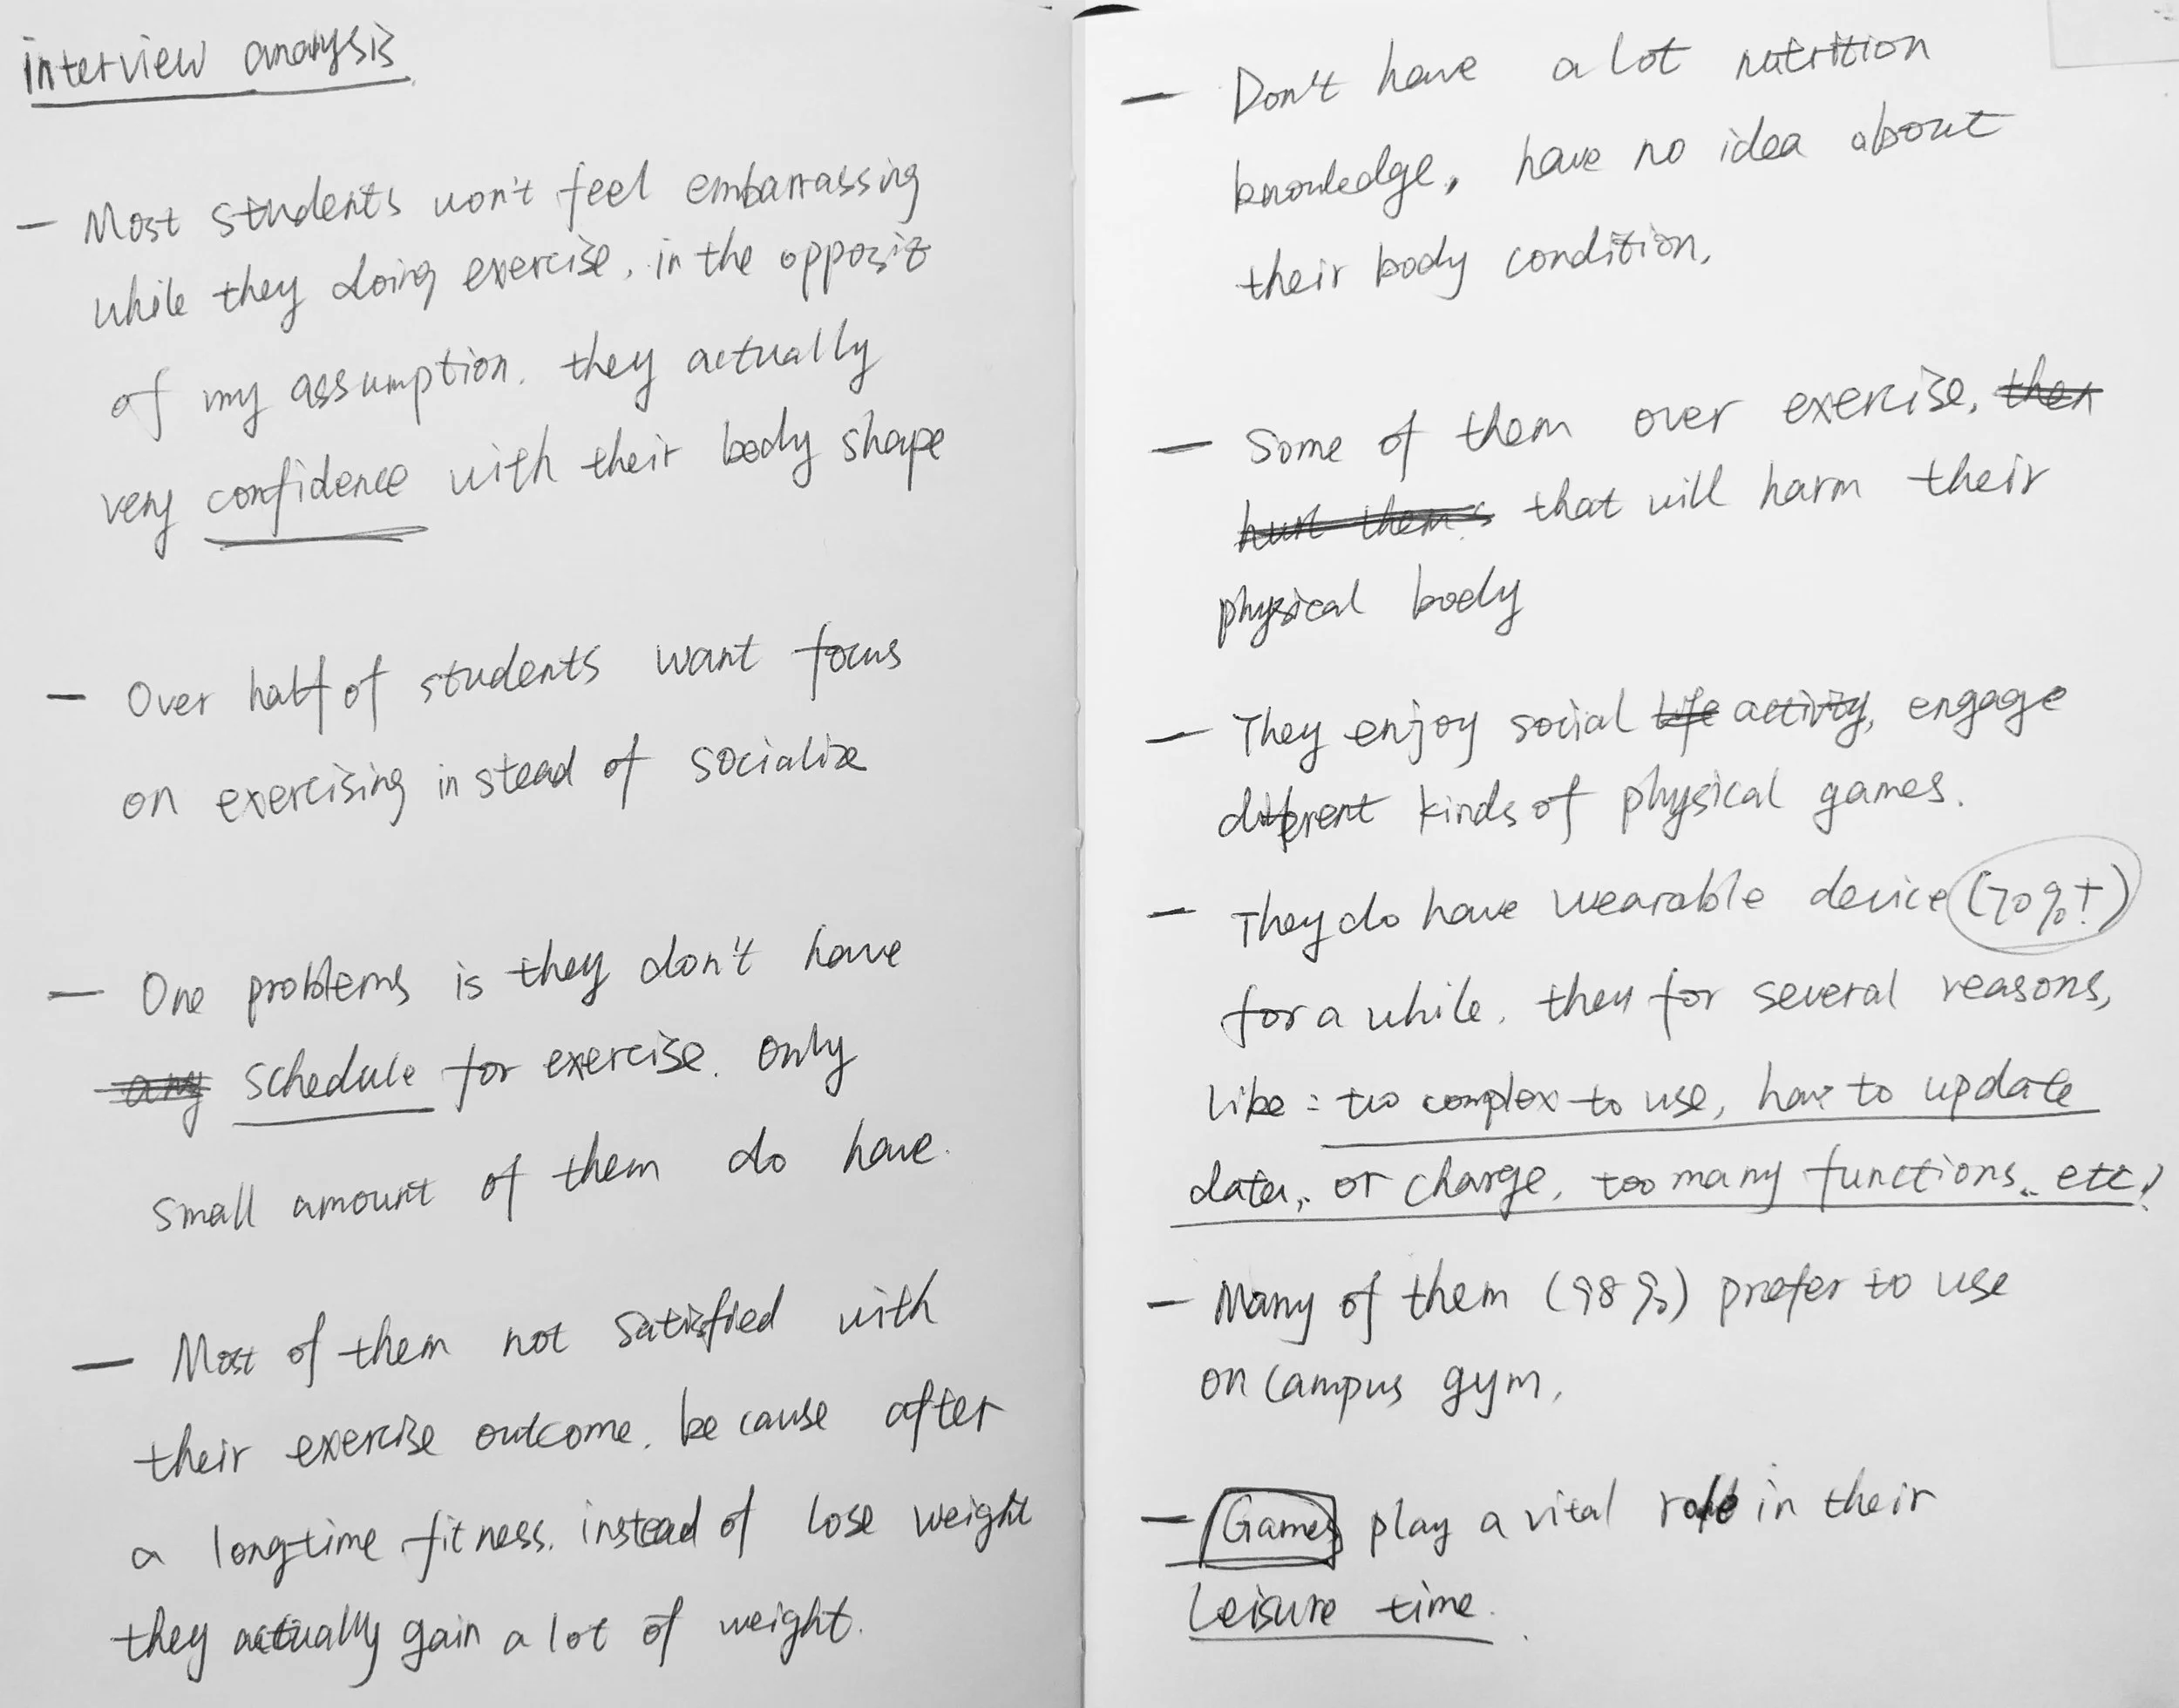 interview analysis
- Most students won't feel embarrassing
while they doing exercise, in the opposite
of my assumption. they actually
very confidence with their body shape
- Over half of students want focus
on exercising instead of socialize
- One problems is they don't have
any schedule for exercise. only
small amount of them do have.
- Most of them not satisfied with
their exercise outcome. because after
a longtime fitness. instead of lose weight
they actually gain a lot of weight.
- Don't have a lot nutrition
knowledge, have no idea about
their body condition,
- Some of them over exercise, then
hurt thems that will harm their
physical body
- They enjoy social life activity, engage
different kinds of physical games.
- They do have wearable device (70%+)
for a while. then for several reasons,
like: too complex to use, have to update
data, or charge, too many functions.. etc!
- Many of them (98%) prefer to use
on campus gym,
- Games play a vital role in their
leisure time.